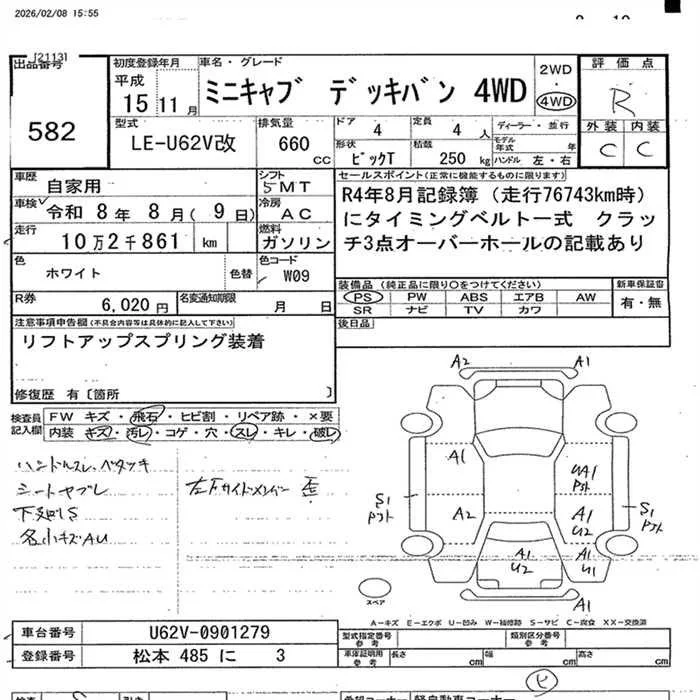 2026/02/08 15:55
[2113]
出品番号
582
初度登録年月
平成
15 11 月
車名・グレード
ミニキャブ デッキバン 4WD
2WD
・
4WD
評価点
R
外装 内装
C C
型式
LE-U62V改
排気量
660 cc
ドア
4
定員
4 人
形状
ピックT
積数
250 kg
ディーラー・並行
モデル年式 年
ハンドル 左・右
車歴
自家用
シフト
5MT
車検
令和 8年 8月( 9日)
冷房
AC
走行
10万2千861 km
燃料
ガソリン
色
ホワイト
色替
色コード
W09
R券
6,020 円
名変通知期限
月 日
セールスポイント(正常に機能するものに限ります)
R4年8月記録簿(走行76743km時)
にタイミングベルト一式 クラッ
チ3点オーバーホールの記載あり
装備品(純正品に限り○をつけてください)
PS PW ABS エアB AW
SR ナビ TV カワ
新車保証書
有・無
後日品
注意事項申告欄(不具合内容等は具体的に記入して下さい)
リフトアップスプリング装着
修復歴 有〔箇所 〕
検査員記入欄
FW キズ・飛石・ヒビ割・リペア跡・×要
内装 キズ・汚レ・コゲ・穴・スレ・キレ・破レ
ハンドルスレ、ベタツキ
シートヤブレ
下廻りS
各小キズAU
左下サイドメンバー 歪
A2 A1
A1
UA1
S1
A2
A1
U2
S1
A1
U2
A1
U1
A1
スペア
A-キズ E-エクボ U-凹み W-補修跡 S-サビ C-腐食 XX-交換済
車台番号
U62V-0901279
登録番号
松本 485 に 3
型式指定番号
参考
類別区分番号
参考
車庫証明用
参考
長さ cm 幅 cm 高さ cm